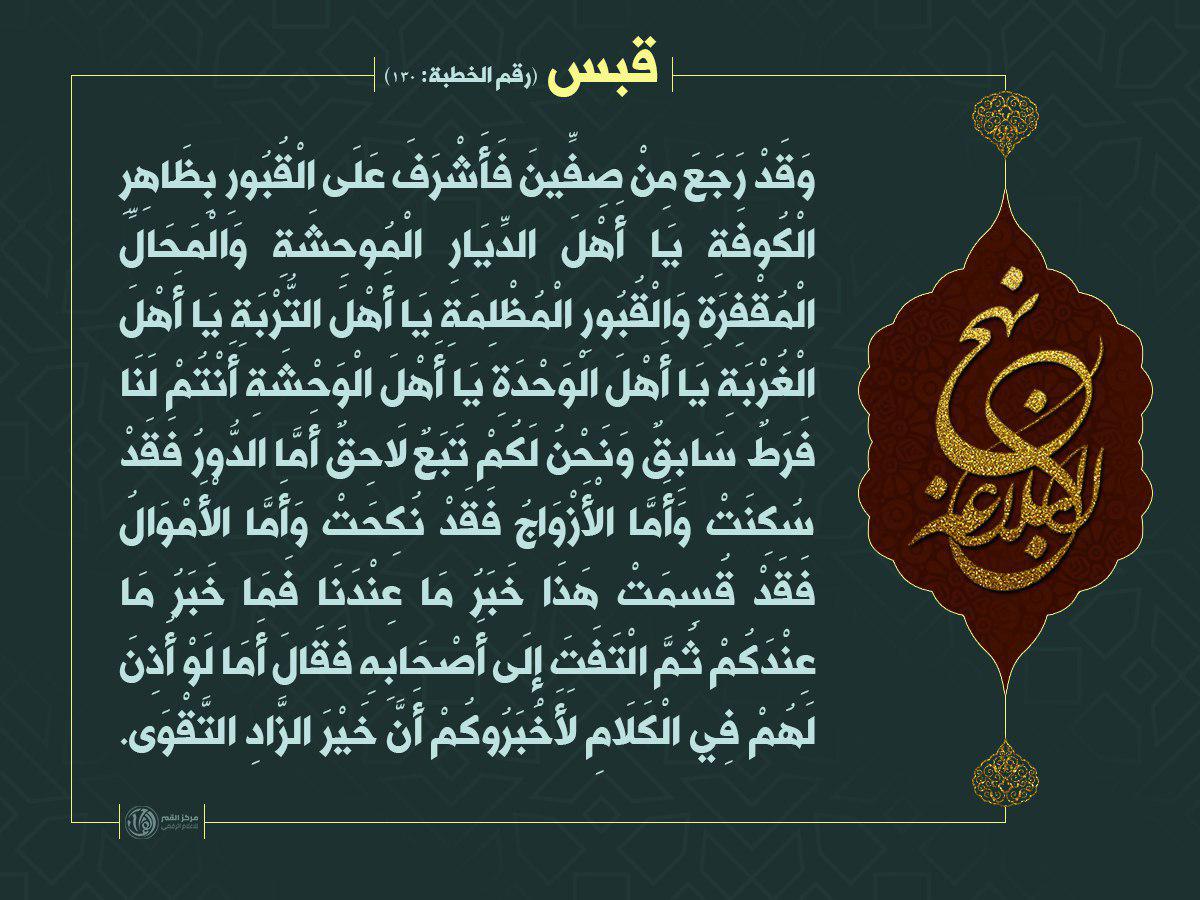 قبس (رقم الخطبة: ١٣٠)
وَقَدْ رَجَعَ مِنْ صِفِّينَ فَأَشْرَفَ عَلَى الْقُبُورِ بِظَاهِرِ
الْكُوفَةِ يَا أَهْلَ الدِّيَارِ الْمُوحِشَةِ وَالْمَحَالِّ
الْمُقْفِرَةِ وَالْقُبُورِ الْمُظْلِمَةِ يَا أَهْلَ التُّرْبَةِ يَا أَهْلَ
الْغُرْبَةِ يَا أَهْلَ الْوَحْدَةِ يَا أَهْلَ الْوَحْشَةِ أَنْتُمْ لَنَا
فَرَطٌ سَابِقٌ وَنَحْنُ لَكُمْ تَبَعٌ لَاحِقٌ أَمَّا الدُّورُ فَقَدْ
سُكِنَتْ وَأَمَّا الْأَزْوَاجُ فَقَدْ نُكِحَتْ وَأَمَّا الْأَمْوَالُ
فَقَدْ قُسِمَتْ هَذَا خَبَرُ مَا عِنْدَنَا فَمَا خَبَرُ مَا
عِنْدَكُمْ ثُمَّ الْتَفَتَ إِلَى أَصْحَابِهِ فَقَالَ أَمَا لَوْ أُذِنَ
لَهُمْ فِي الْكَلَامِ لَأَخْبَرُوكُمْ أَنَّ خَيْرَ الزَّادِ التَّقْوَى.
نهج
البلاغة
مركز القمر
للاعلام الرقمي